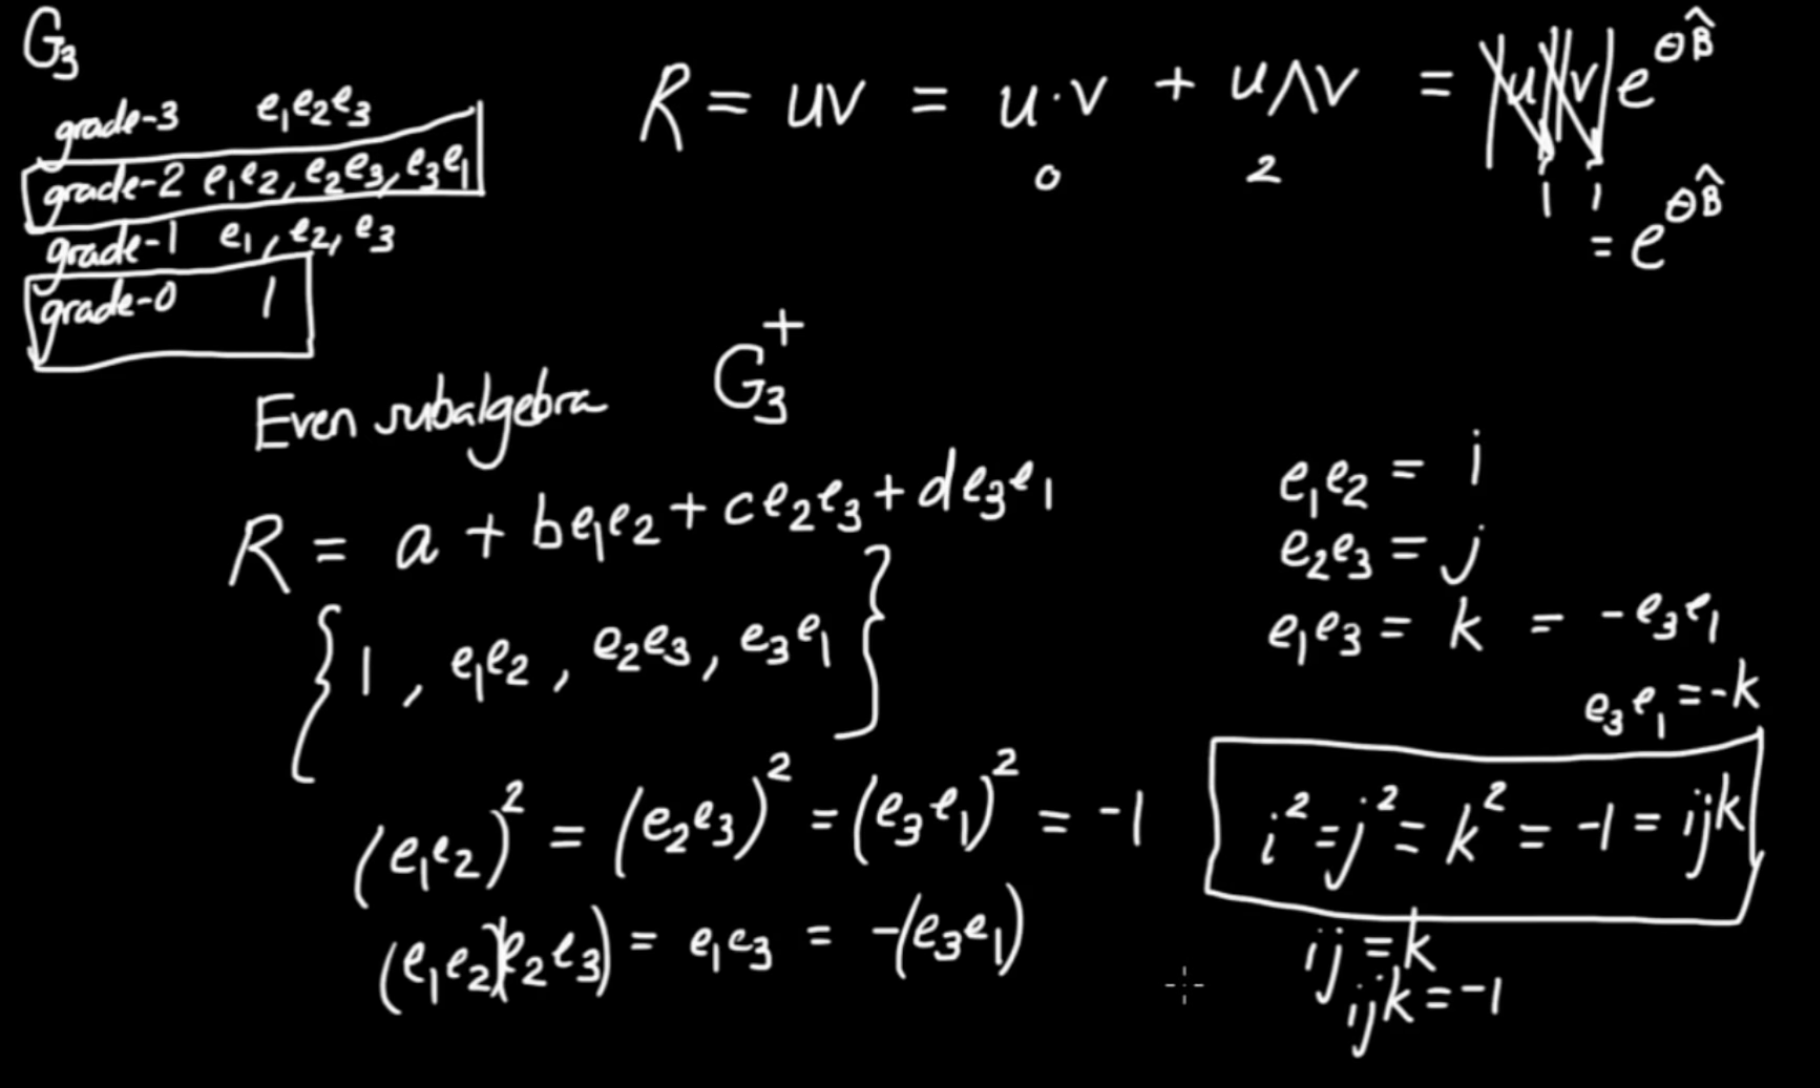 G₃
grade-3 e₁e₂e₃
grade-2 e₁e₂, e₂e₃, e₃e₁
grade-1 e₁, e₂, e₃
grade-0 1
R = uv = u·v + u∧v = |u||v|e^{θB̂}
0 2 1 1
= e^{θB̂}
Even subalgebra G₃⁺
R = a + be₁e₂ + ce₂e₃ + de₃e₁
{1, e₁e₂, e₂e₃, e₃e₁}
(e₁e₂)² = (e₂e₃)² = (e₃e₁)² = -1
(e₁e₂)(e₂e₃) = e₁e₃ = -(e₃e₁)
e₁e₂ = i
e₂e₃ = j
e₁e₃ = k = -e₃e₁
e₃e₁ = -k
i² = j² = k² = -1 = ijk
ij = k
ijk = -1